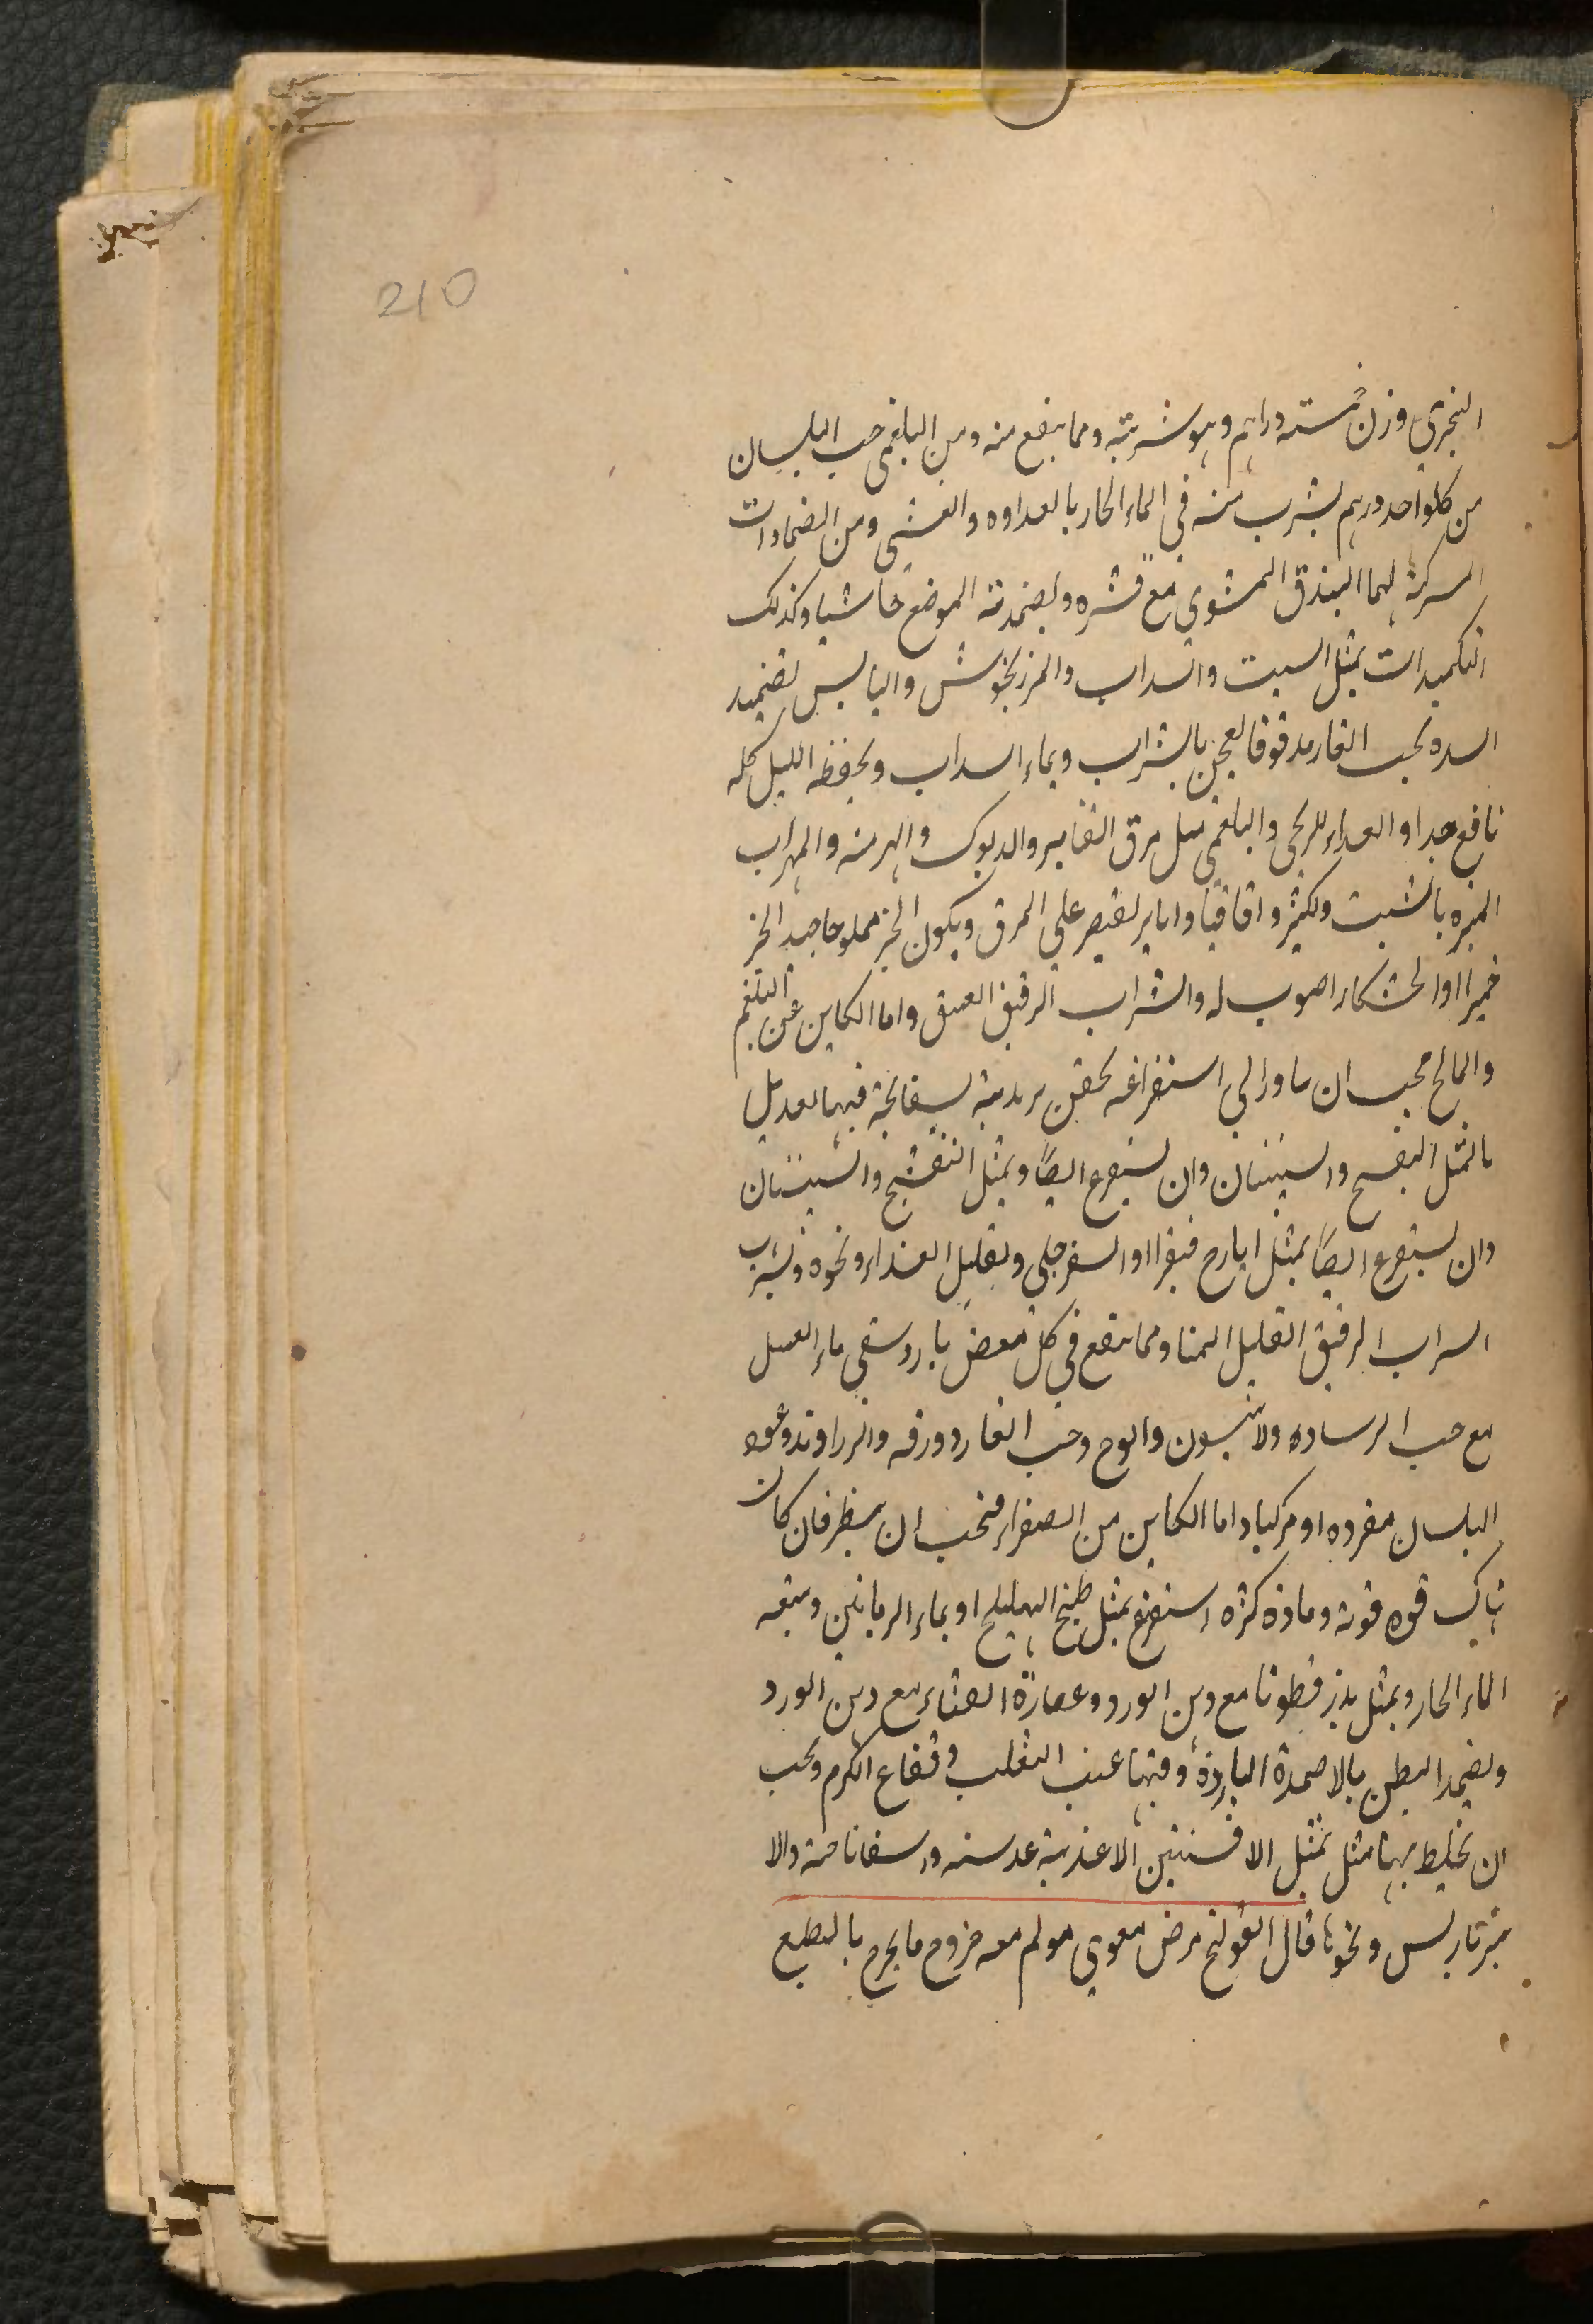 210
النجري وزن خمسته دراهم وهو شربته ومما ينفع منه ومن البلغمى حب البلسان
من كلواحد درهم يشرب منه فى الماء الحار بالعداوه والعشى ومن الضمادات
المسركة لهما البندق المشوى مع قشره ويضمد به الموضع خاشيا وكذلك
التكميدات بمثل السبت والسداب والمرزنجوش واليابس تضميد
السده بحب الغار مدقوقا يعجن بالشراب وبماء السداب ويحفظه الليل كله
نافع جدا والعداء للريحى والبلغمى مثل مرق القنابر والديوك والهرمه والمهراب
المبزه بالشبت ويكثر و اقاقيا واباير يقتصر على المرق ويكون الخبز مملوحا جيد الخبز
خميرا اوالخشكار اصوب له والشراب الرقيق العتيق واما الكاين عن البلغم
والمالح فيجب ان يبادر الى استفراغه بحقن بسفايجة فيها تعديل
ما بمثل البنفسج والسبستان وان يستفرغ ايضا وبمثل البنفشج والسبستان
وان يستفرغ ايضا بمثل ايارج فيقرا او السفرجلى وتقليل الغذاء ونحوه وشرب
السراب الرقيق القليل المنا ومما ينفع فى كل مغض بارد سقى ماء العسل
مع حب الرساده ولانيسون والوج وحب الغار دورقه والزراوند وعود
البلسان مفرده او مركبا واما الكاين من الصفراء فيجب ان ينظر فان كان
هناك قوه قوية وماده كثره استفرغ بمثل طبخ الهليلج او بماء الرمانين وبتبعه
الماء الحار وبمثل بذر قطونا مع دهن الورد وعصارة القثاء مع دهن الورد
ويضمد البطن بالاضمدة الباردة وفيها عنب الثعلب وفقاع الكرم ويجب
ان يخلط بهما مثل بمثل الافسنتين الاغذية عدسيه واسفاناخيه والا
ميرباريس ونحوها قال القولنج مرض معوي مولم معه خروج ما يخرج بالطبع